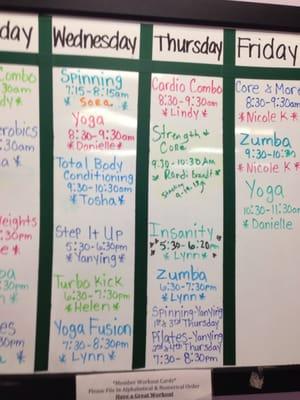 day
Combo
30am
dy*
erobics
30am
a *
eights
30pm
e *
ba
pm
n *
es
pm
*
Wednesday
Spinning
7:15-8:15am
* Sara *
Yoga
8:30-9:30am
* Danielle*
Total Body
Conditioning
9:30-10:30am
*Tosha*
Step It Up
5:30-6:30pm
*Yanying*
Turbo Kick
6:30-7:30pm
*Helen*
Yoga Fusion
7:30-8:30pm
*Lynn*
Thursday
Cardio Combo
8:30-9:30am
*Lindy*
Strength &
Core
9:30-10:30am
* Randi Brandt *
Insanity
5:30-6:20pm
*Lynn*
Zumba
6:30-7:30pm
*Lynn*
Spinning-Yanying
1st & 3rd Thursday
Pilates-Yanying
2nd & 4th Thursday
7:30-8:30pm
Friday
Core & More
8:30-9:30am
*Nicole K*
Zumba
9:30-10:30
*Nicole K*
Yoga
10:30-11:30am
*Danielle
*Member Workout Cards*
Please File In Alphabetical & Numerical Order
Have a Great Workout